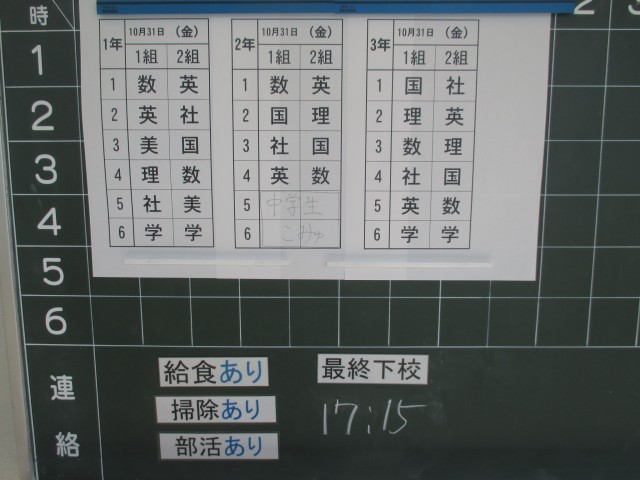 時
2 3
1年 10月31日 (金)
1組 2組
1 数 英
2 英 社
3 美 国
4 理 数
5 社 美
6 学 学
2年 10月31日 (金)
1組 2組
1 数 英
2 国 理
3 社 国
4 英 数
5 中学生
6 こみゅ
3年 10月31日 (金)
1組 2組
1 国 社
2 理 英
3 数 理
4 社 国
5 英 数
6 学 学
1
2
3
4
5
6
連絡
給食あり
掃除あり
部活あり
最終下校
17:15